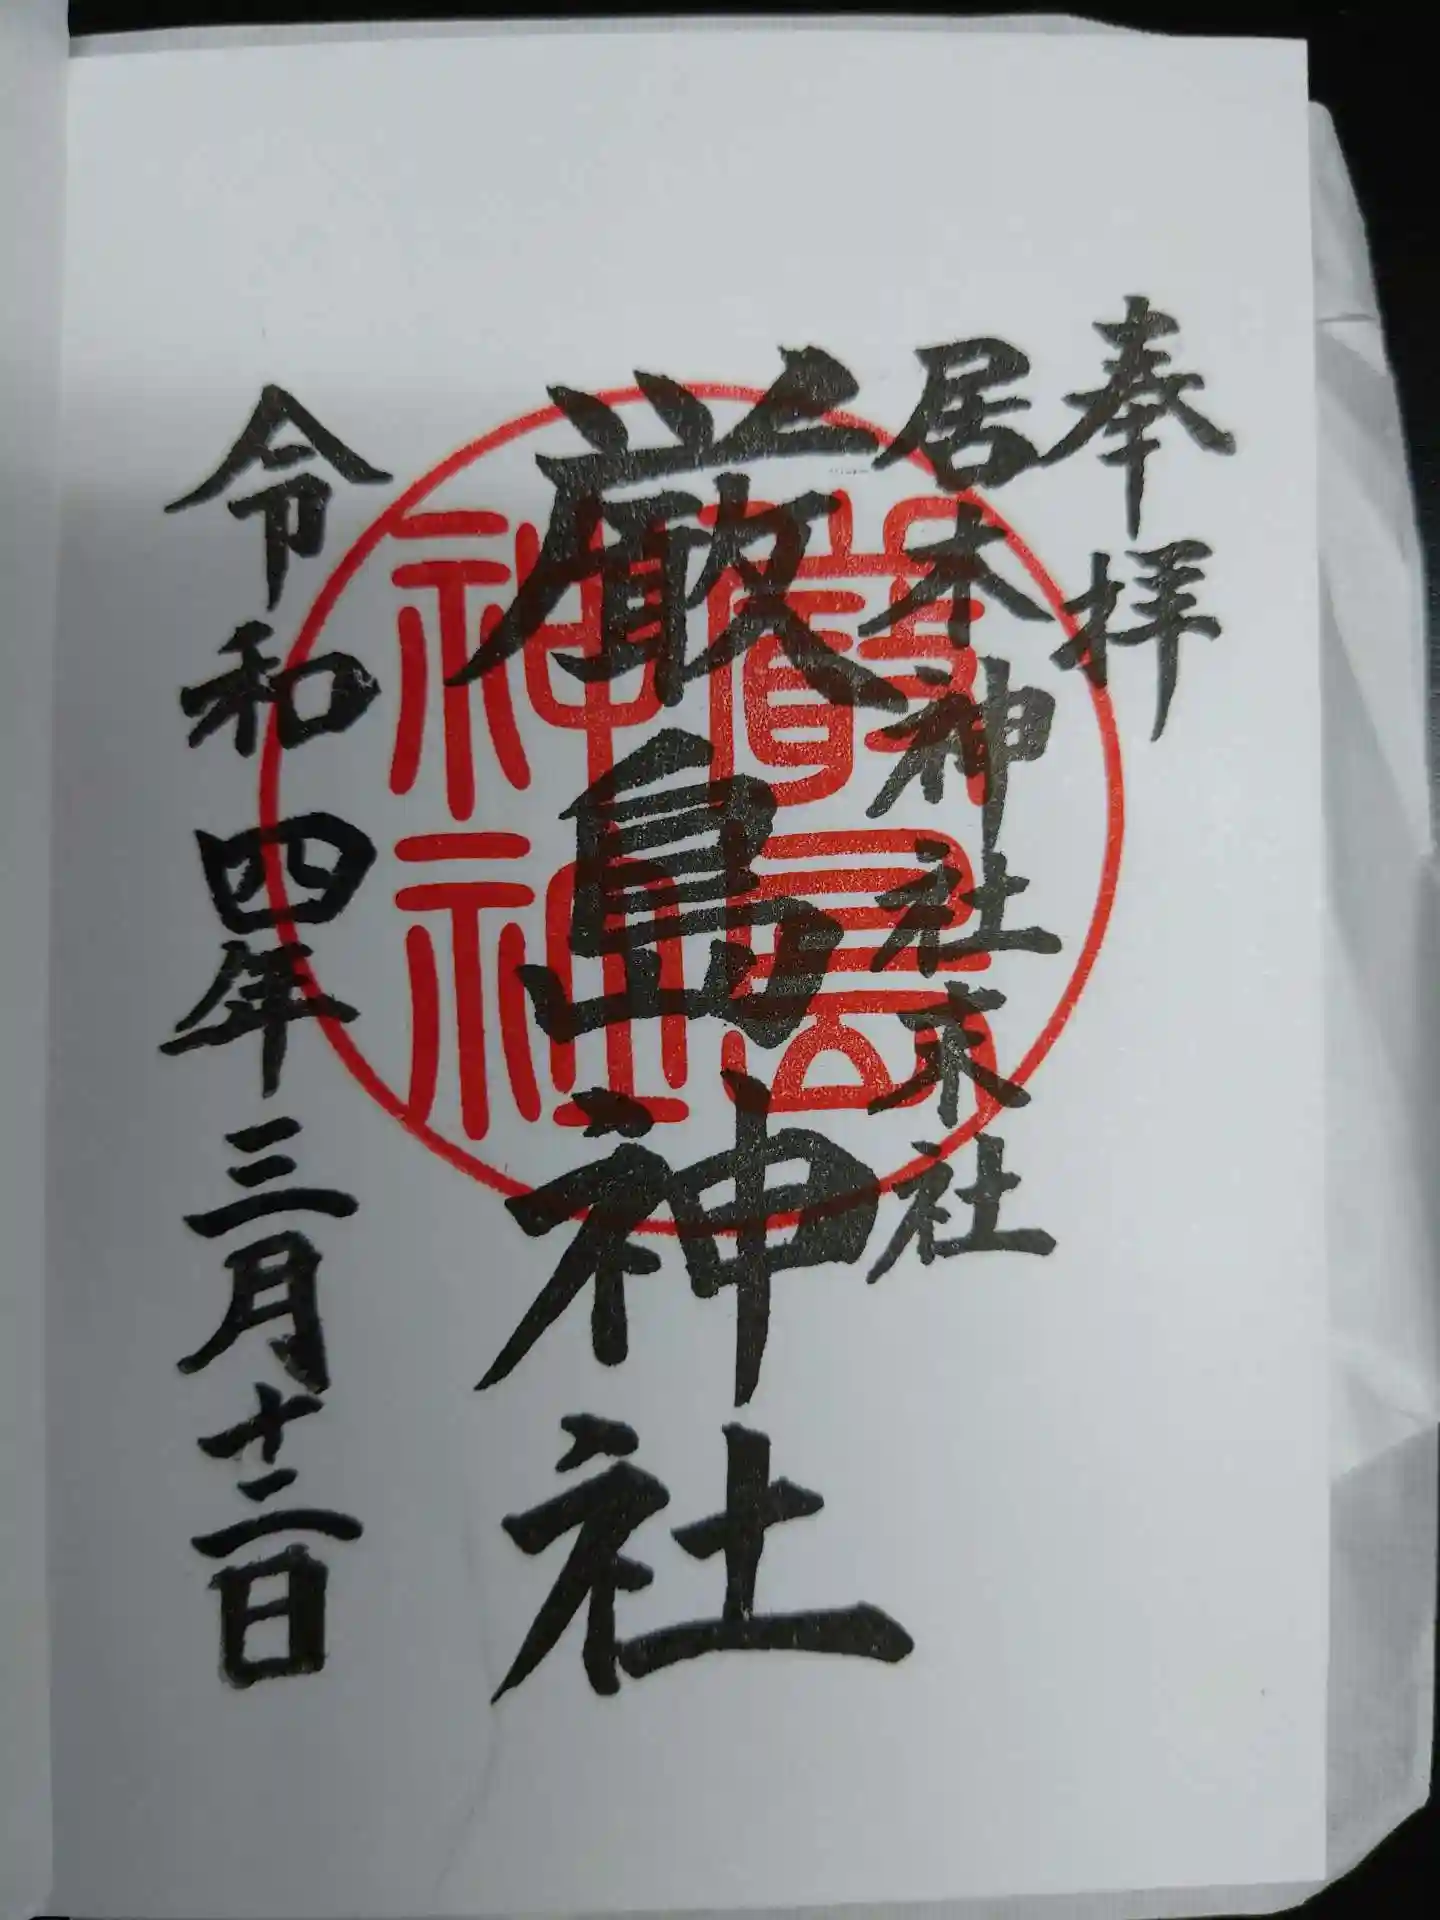 奉拝
居木神社末社
厳島神社
令和四年三月十二日
厳島神社